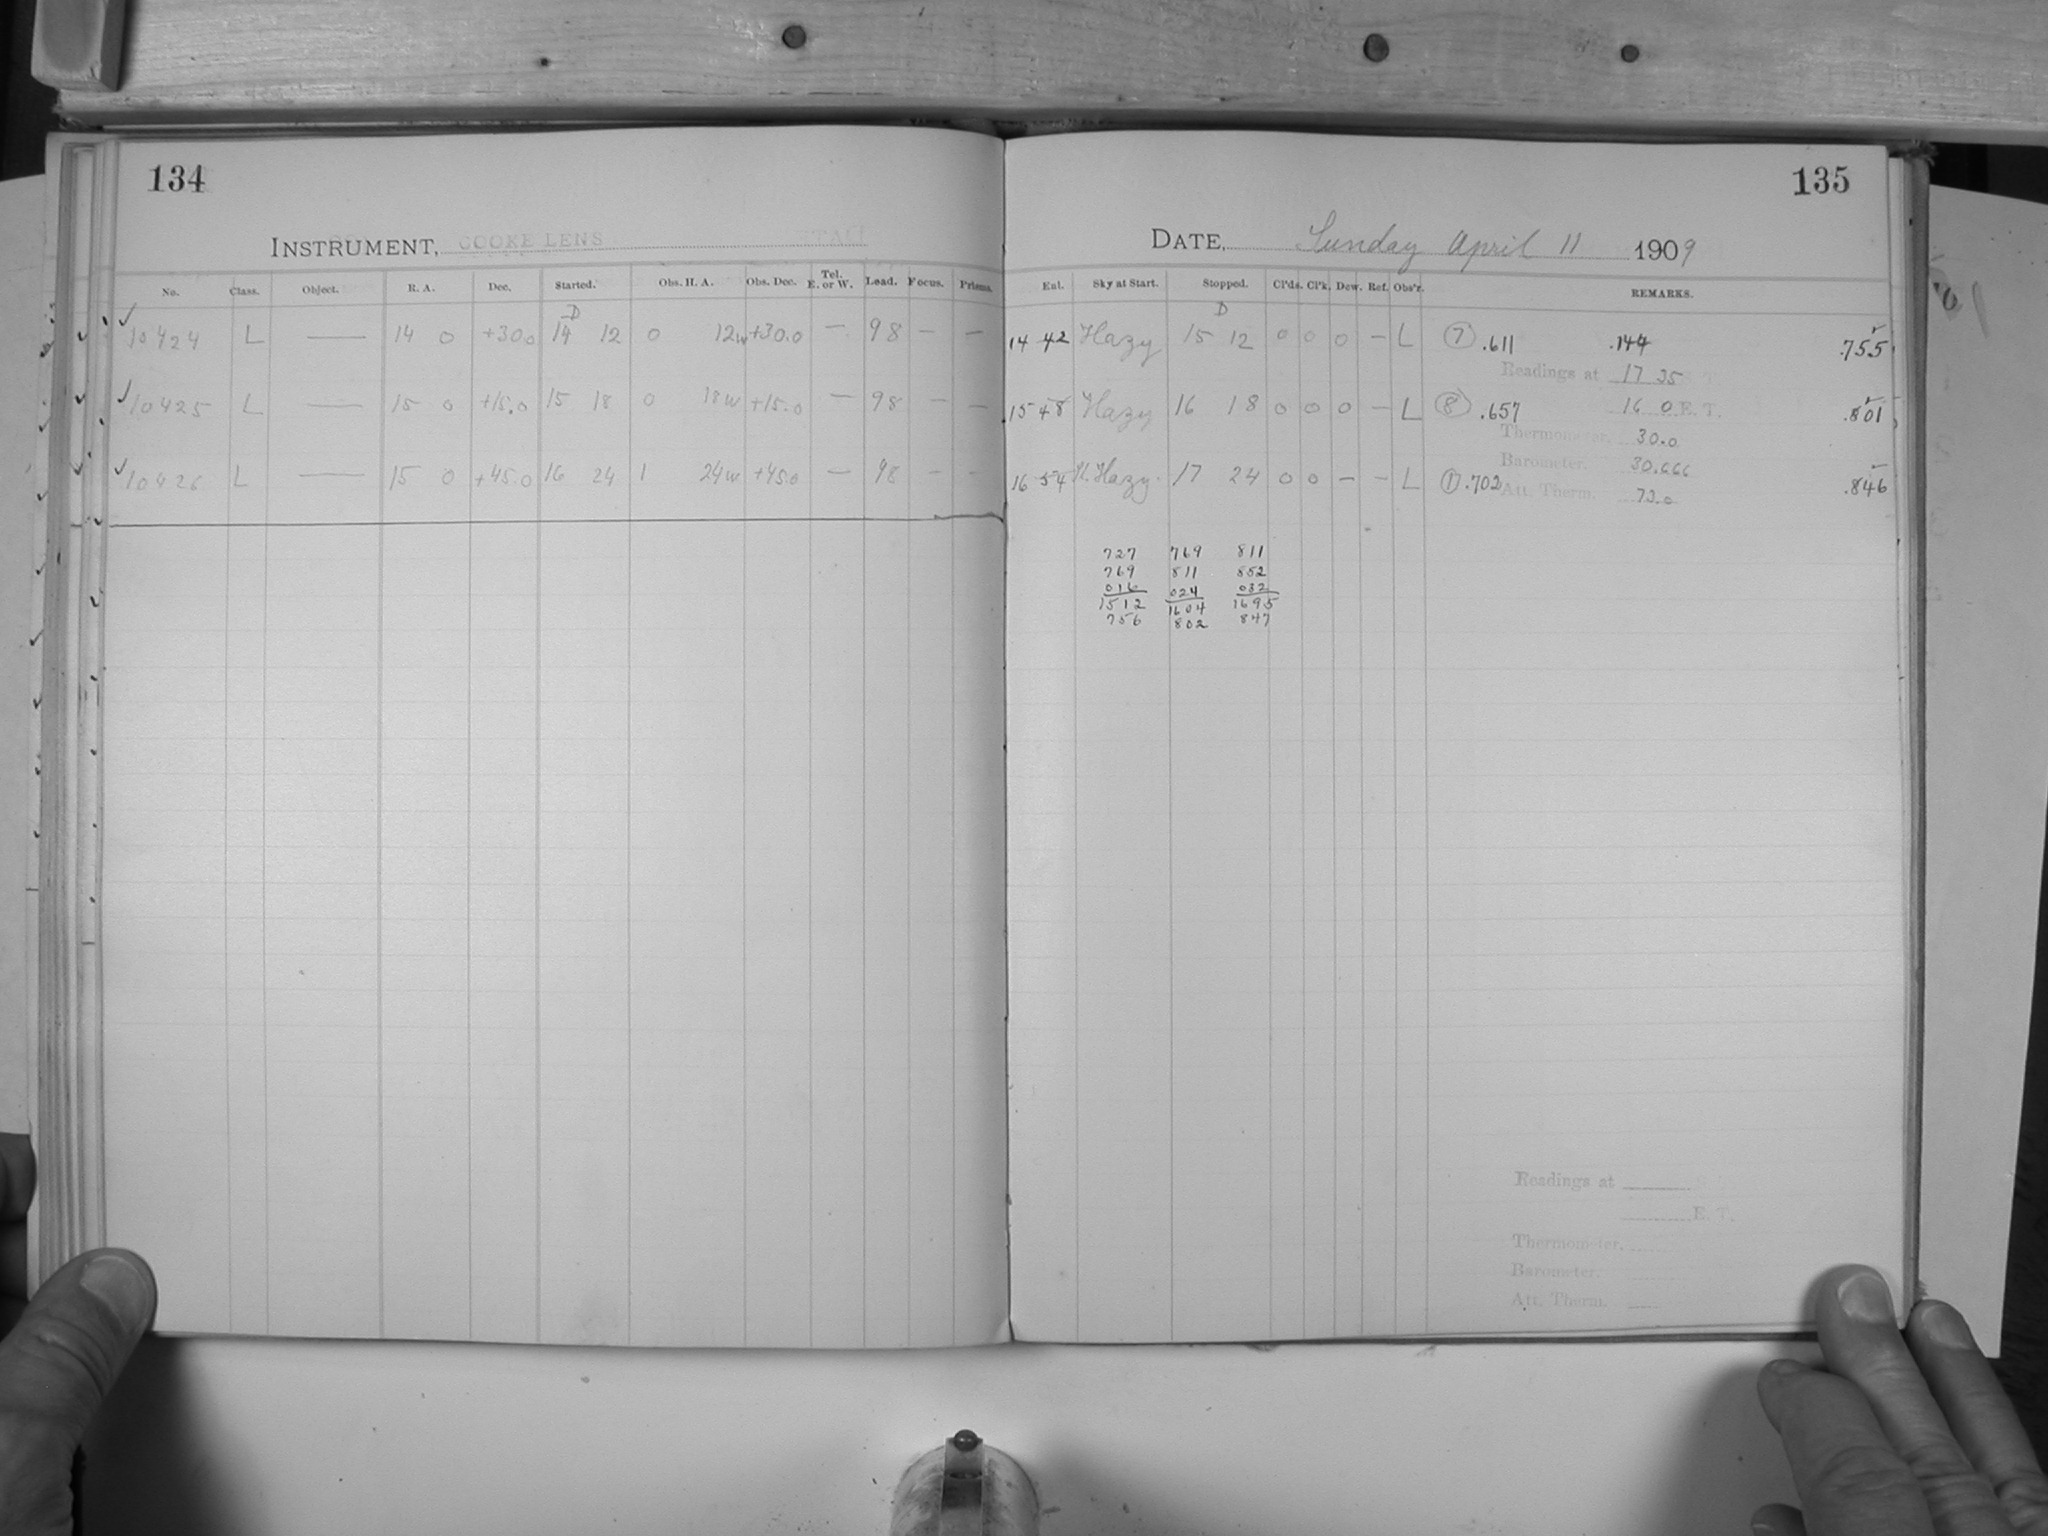 134
INSTRUMENT, COOKE LENS
No. Class. Object. R. A. Dec. Started. Obs. H. A. Obs. Dec. Tel. E. or W. Load. Focus. Prisms.
D
✓ 10424 L — 14 0 +30.0 14 12 0 12w +30.0 — 98 — —
✓ 10425 L — 15 0 +15.0 15 18 0 18w +15.0 — 98 — —
✓ 10426 L — 15 0 +45.0 16 24 1 24w +45.0 — 98 — —
135
DATE, Sunday April 11 1909
Sky at Start. Stopped. Cl'ds. Cl'k. Dew. Ref. Obs'r. REMARKS.
D
14 42 Hazy 15 12 0 0 0 — L (7) .611 .144 .755
Readings at 17 35
15 48 Hazy 16 18 0 0 0 — L (8) .657 16 0 E. T. .801
Thermometer. 30.0
Barometer. 30.666
16 54 Hazy. 17 24 0 0 — — L (1) .702 .846
Att. Therm. 73.0
727 769 811
769 811 852
016 024 032
1512 1604 1695
756 802 847
Readings at
E. T.
Thermometer.
Barometer.
Att. Therm.